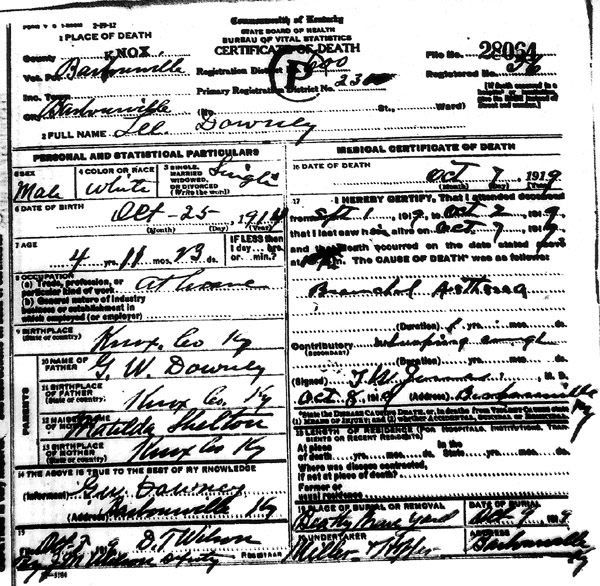 Commonwealth of Kentucky
STATE BOARD OF HEALTH
BUREAU OF VITAL STATISTICS
CERTIFICATE OF DEATH
1 PLACE OF DEATH
County KNOX
Vot. Pct. Barbourville
Inc. Town
Barbourville
Registration District
Primary Registration District No.
File No. 28064
Registered No.
(No. St., Ward)
2 FULL NAME Lee Downey
PERSONAL AND STATISTICAL PARTICULARS
3 SEX Male
4 COLOR OR RACE White
5 SINGLE, MARRIED, WIDOWED, OR DIVORCED (Write the word) Single
6 DATE OF BIRTH
Oct - 25 - 1914
(Month) (Day) (Year)
7 AGE
4 yrs. 11 mos. ds.
IF LESS than 1 day ... hrs. or ... min.?
8 OCCUPATION
(a) Trade, profession, or particular kind of work at home
(b) General nature of industry
business or establishment in
which employed (or employer)
9 BIRTHPLACE
(State or country) Knox Co Ky
PARENTS
10 NAME OF FATHER G. W. Downey
11 BIRTHPLACE OF FATHER
(State or country) Knox Co. Ky
12 MAIDEN NAME OF MOTHER Matilda Shelton
13 BIRTHPLACE OF MOTHER
(State or country) Knox Co Ky
14 THE ABOVE IS TRUE TO THE BEST OF MY KNOWLEDGE
(Informant) G. W. Downey
(Address) Barbourville Ky
15
D. T. Wilson
REGISTRAR
MEDICAL CERTIFICATE OF DEATH
16 DATE OF DEATH
Oct 7 1919
(Month) (Day) (Year)
17 I HEREBY CERTIFY, That I attended deceased
from Sept 1, 1919, to Oct 2, 1919,
that I last saw h alive on Oct 7, 1919,
and that death occurred on the date stated above
at m. The CAUSE OF DEATH was as follows:
Bronchial Asthma
(Duration) yrs. mos. ds.
Contributory whooping cough
(SECONDARY)
(Duration) yrs. mos. ds.
(Signed) M. D.
Oct 8, 1919 (Address) Barbourville Ky
18 LENGTH OF RESIDENCE (FOR HOSPITALS, INSTITUTIONS, TRANSIENTS OR RECENT RESIDENTS)
At place of death yrs. mos. ds. In the State yrs. mos. ds.
Where was disease contracted,
if not at place of death?
Former or
usual residence
19 PLACE OF BURIAL OR REMOVAL
Grave Yard
DATE OF BURIAL
Oct 9 1919
20 UNDERTAKER
Miller & Hopper
ADDRESS
Barbourville Ky